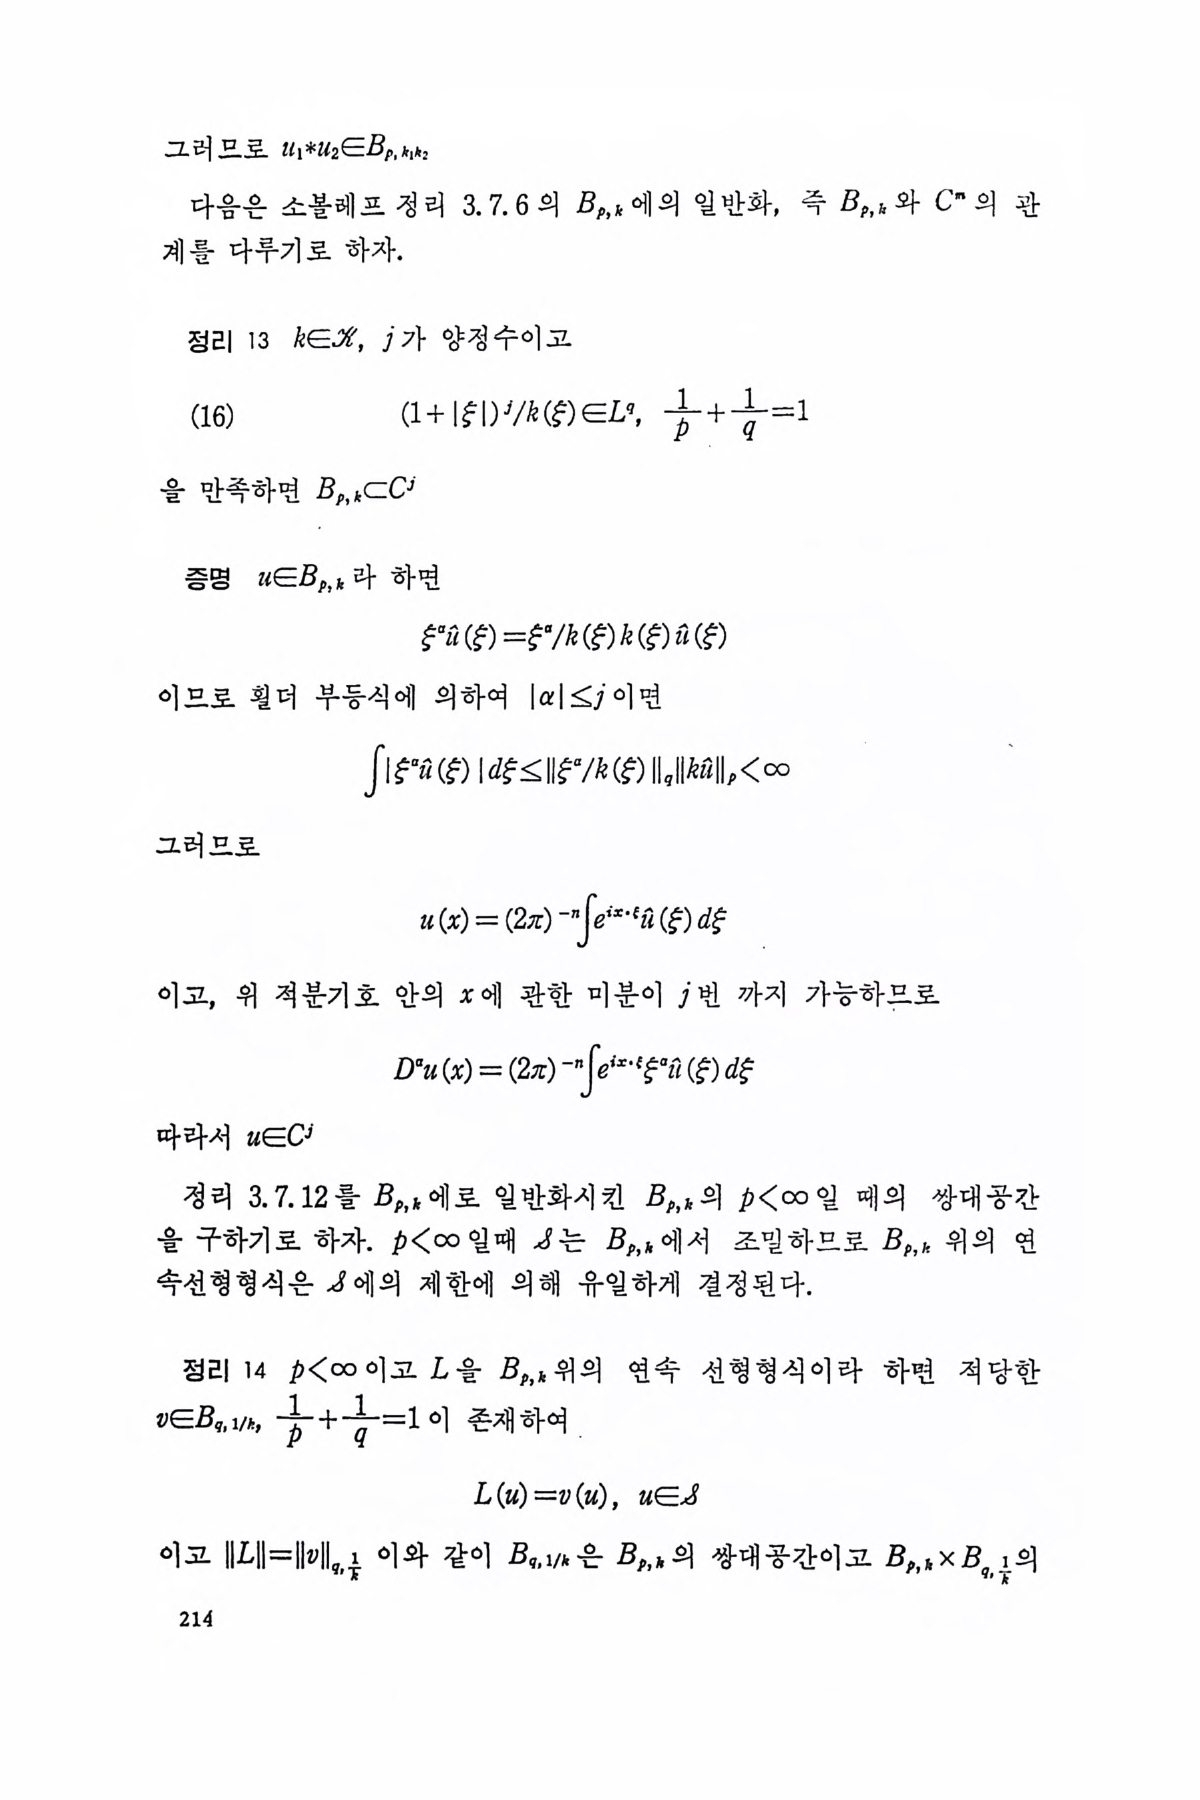 그러므로 u₁*u₂∈B_{p, k₁k₂}
다음은 소볼레프 정리 3.7.6의 B_{p,k}에의 일반화, 즉 B_{p,k}와 Cᵐ의 관
계를 다루기로 하자.
정리 13 k∈𝒦, j가 양정수이고
(16) (1+|ξ|)^j/k(ξ)∈L^q, 1/p+1/q=1
을 만족하면 B_{p,k}⊂C^j
증명 u∈B_{p,k}라 하면
ξ^α û(ξ)=ξ^α/k(ξ)k(ξ)û(ξ)
이므로 횔더 부등식에 의하여 |α|≤j이면
∫|ξ^α û(ξ)|dξ≤‖ξ^α/k(ξ)‖_q‖kû‖_p<∞
그러므로
u(x)=(2π)^{-n}∫e^{ix·ξ}û(ξ)dξ
이고, 위 적분기호 안의 x에 관한 미분이 j번 까지 가능하므로
D^α u(x)=(2π)^{-n}∫e^{ix·ξ}ξ^α û(ξ)dξ
따라서 u∈C^j
정리 3.7.12를 B_{p,k}에로 일반화시킨 B_{p,k}의 p<∞일 때의 쌍대공간
을 구하기로 하자. p<∞일때 𝒮는 B_{p,k}에서 조밀하므로 B_{p,k} 위의 연
속선형형식은 𝒮에의 제한에 의해 유일하게 결정된다.
정리 14 p<∞이고 L을 B_{p,k}위의 연속 선형형식이라 하면 적당한
v∈B_{q,1/k}, 1/p+1/q=1이 존재하여
L(u)=v(u), u∈𝒮
이고 ‖L‖=‖v‖_{q,1/k} 이와 같이 B_{q,1/k}은 B_{p,k}의 쌍대공간이고 B_{p,k}×B_{q,1/k}의
214